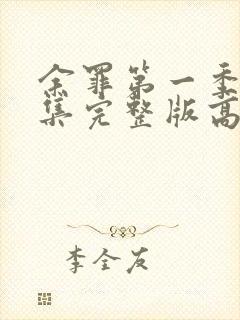 余罪第一季
集完整版高
李全友